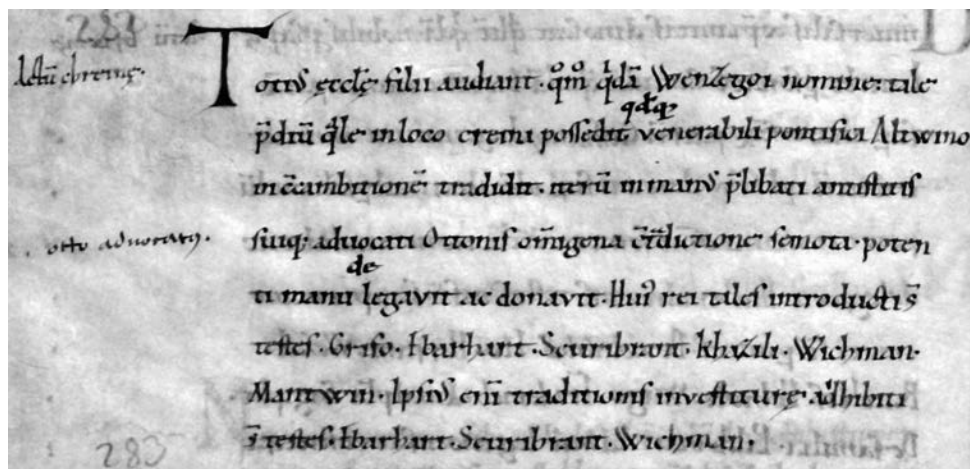 283
Actū chremę.
Totiꝰ ęccl̄ę filii audiant. qͦm̊ qͥdā Wenzegoi nomine: tale
p̄diū qͣle in loco cremi possedit venerabili pontifici Altwino
in c̄cambitionē tradidit. iterū in manꝰ p̄libati antistitis
otto aduocatꝰ.
suiq; aduocati Ottonis om̄igena c̄tͣdictione semota. poten
de
ti manu legavit ac donavit. Huiꝰ rei tales introducti s̄
testes. Griso. Ebarhart. Scuribrant. Khazili. Wichman.
Mantwin. Ipsiꝰ eni̅ traditionis investiturę. adhibiti
s̄ testes. Ebarhart. Scuribrant. Wichman.
283